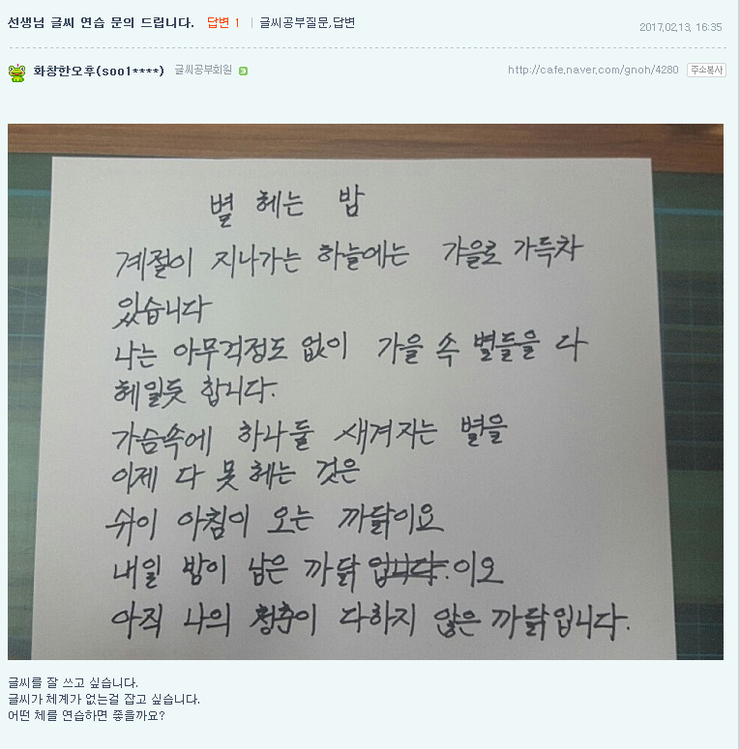 선생님 글씨 연습 문의 드립니다. 답변 1 | 글씨공부질문,답변
2017.02.13. 16:35
화창한오후(soo1****) 글씨공부회원
http://cafe.naver.com/gnoh/4280 주소복사
별 헤는 밤
계절이 지나가는 하늘에는 가을로 가득차
있습니다
나는 아무걱정도 없이 가을 속 별들을 다
헤일듯 합니다.
가슴속에 하나둘 새겨자는 별을
이제 다 못 헤는 것은
쉬이 아침이 오는 까닭이요
내일 밤이 남은 까닭 입니다. 이오
아직 나의 청춘이 다하지 않은 까닭입니다.
글씨를 잘 쓰고 싶습니다.
글씨가 체계가 없는걸 잡고 싶습니다.
어떤 체를 연습하면 좋을까요?